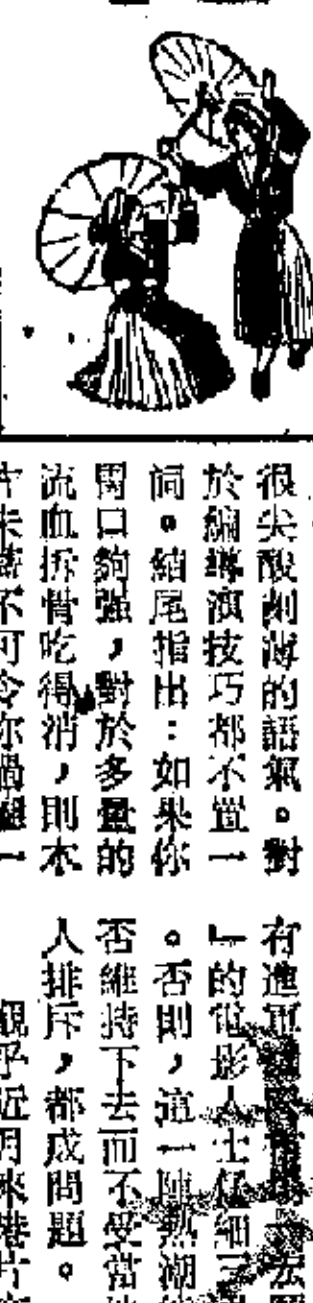 很尖酸刻薄的語氣。對
於編導演技巧都不置一
詞。結尾指出：如果你
胃口夠强，對於多量的
流血拆骨吃得消，則本
片未嘗不可令你過癮一
有進軍
」的電影人士仔細三
。否則，這一陣熱潮
否維持下去而不受當地
人排斥，都成問題。
觀乎近月來港片